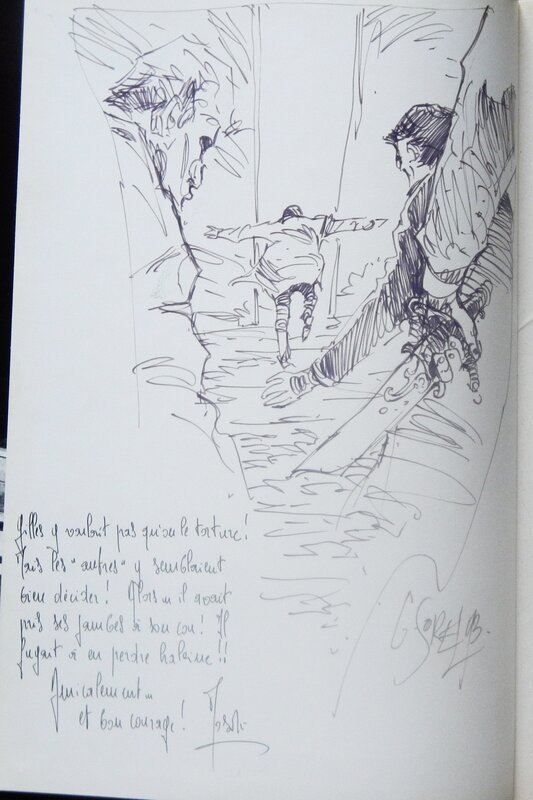 Gilles y voulait pas qu'on le torture!
Mais les "autres" y semblaient
bien décider! Alors... il avait
pris ses jambes à son cou! Il
fuyait à en perdre haleine!!
Amicalement...
et bon courage!
G SOREL 93.